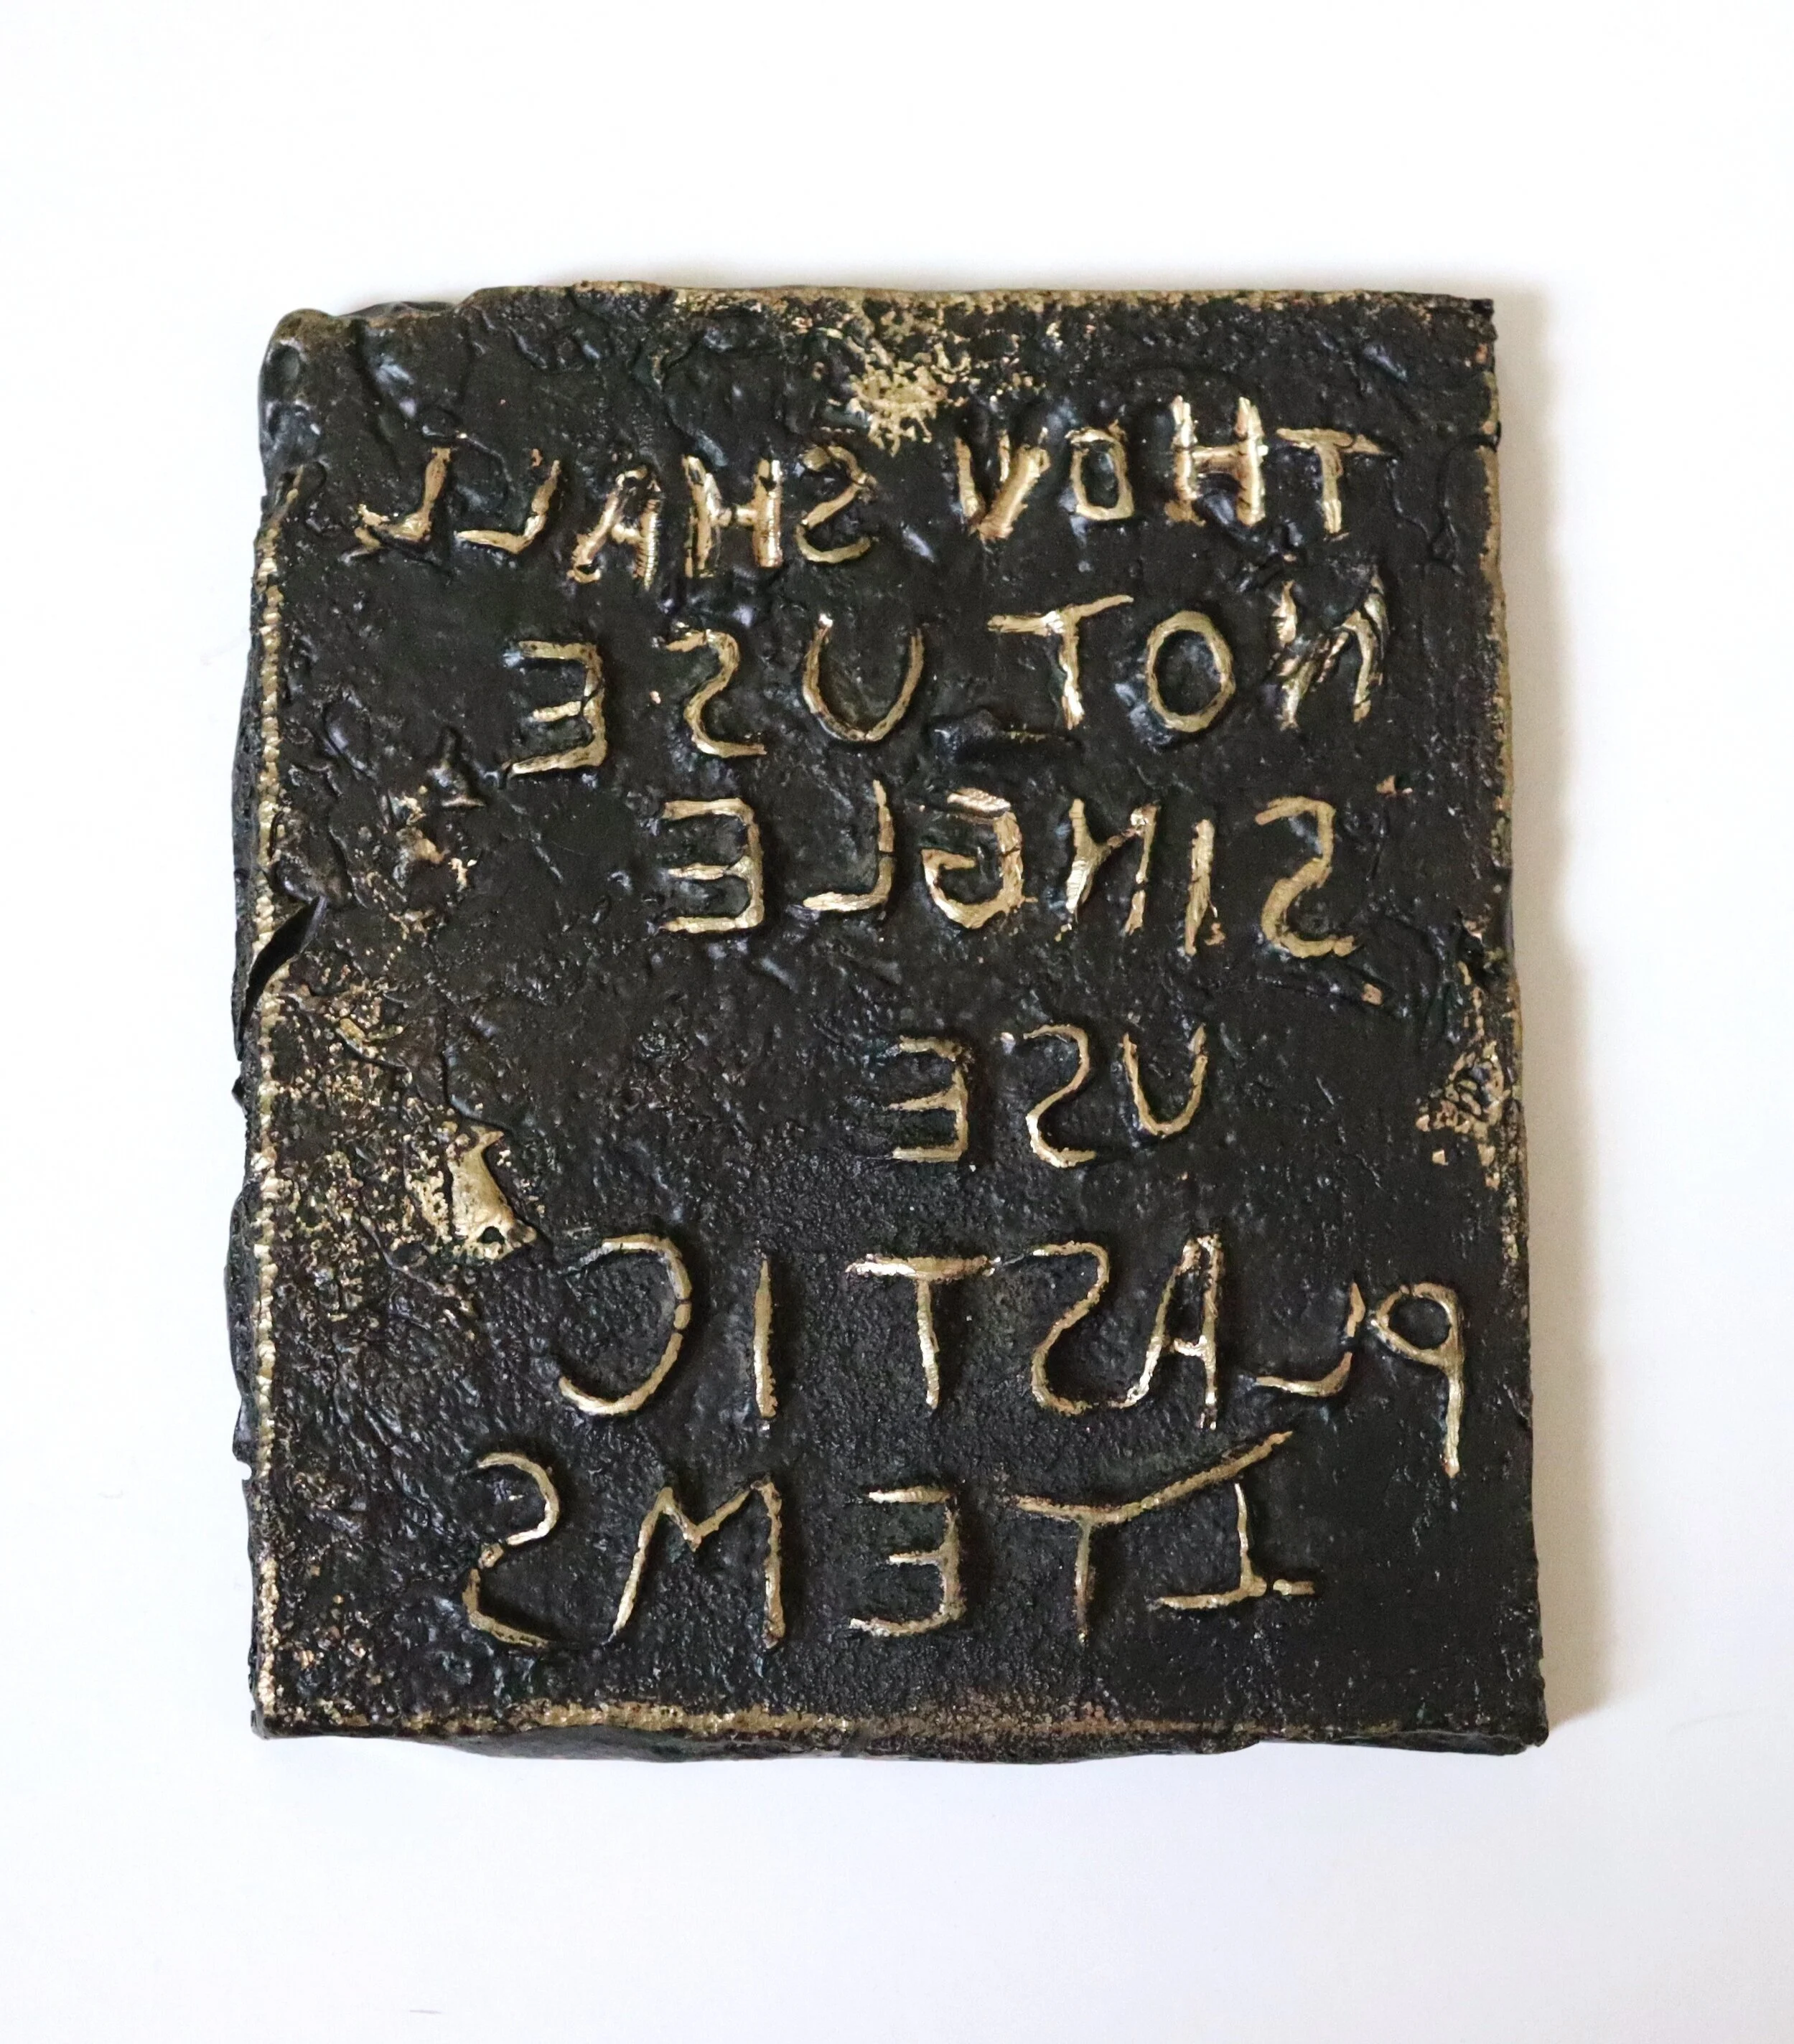 THOU SHALL
NOT USE
SINGLE
USE
PLASTIC
ITEMS